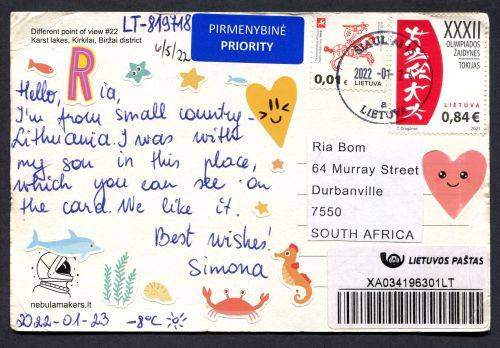 Different point of view #22
Karst lakes, Kirkilai, Biržai district
LT-819718
4/5/22
PIRMENYBINĖ
PRIORITY
0,01 €
ŠIAULIAI
2022-01-2
a
LIETUVA
XXXII
OLIMPIADOS
ŽAIDYNĖS
TOKIJAS
LIETUVA
0,84 €
2021
Hello, Ria,
I'm from small country –
Lithuania. I was with
my son in this place,
which you can see on
the card. We like it.
Best wishes!
Simona
Ria Bom
64 Murray Street
Durbanville
7550
SOUTH AFRICA
LIETUVOS PAŠTAS
XA034196301LT
nebulamakers.lt
2022-01-23 -8°C